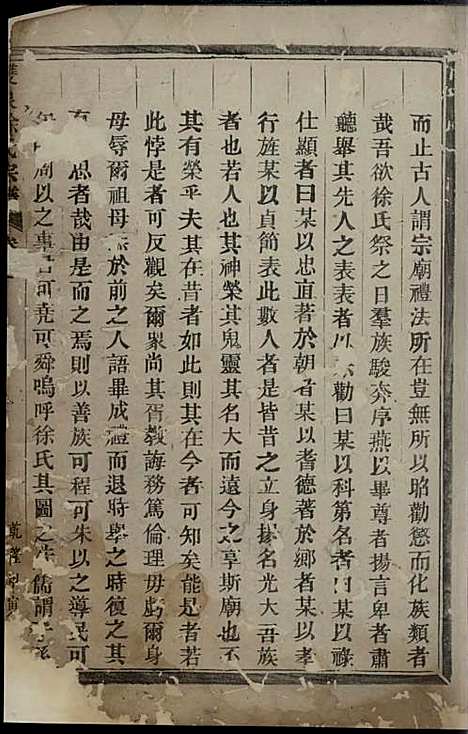 而止古人謂宗廟禮法所在豈無所以昭勸懲而化族類者
哉吾欲徐氏祭之日羣族駿奔序燕以畢尊者揚言卑者肅
聽舉其先人之表表者以勸曰某以科第名者曰某以祿
仕顯者曰某以忠直著於朝者某以耆德著於鄉者某以孝
行旌某以貞節表此數人者是皆昔之立身揚名光大吾族
者也若人也其神榮其鬼靈其名大而遠今之享斯廟也不
其有榮乎夫其在昔者如此則其在今者可知矣能是者若
此悖是者可反觀矣爾眾尚其胥教誨務篤倫理毋虧爾身
母辱爾祖母 於前之人語畢成禮而退時舉之時復之其
有 思者哉由是而之焉則以善族可程可朱以之導民可
以之事君可堯可舜嗚呼徐氏其圖之 儒謂
徐氏宗譜
乾隆